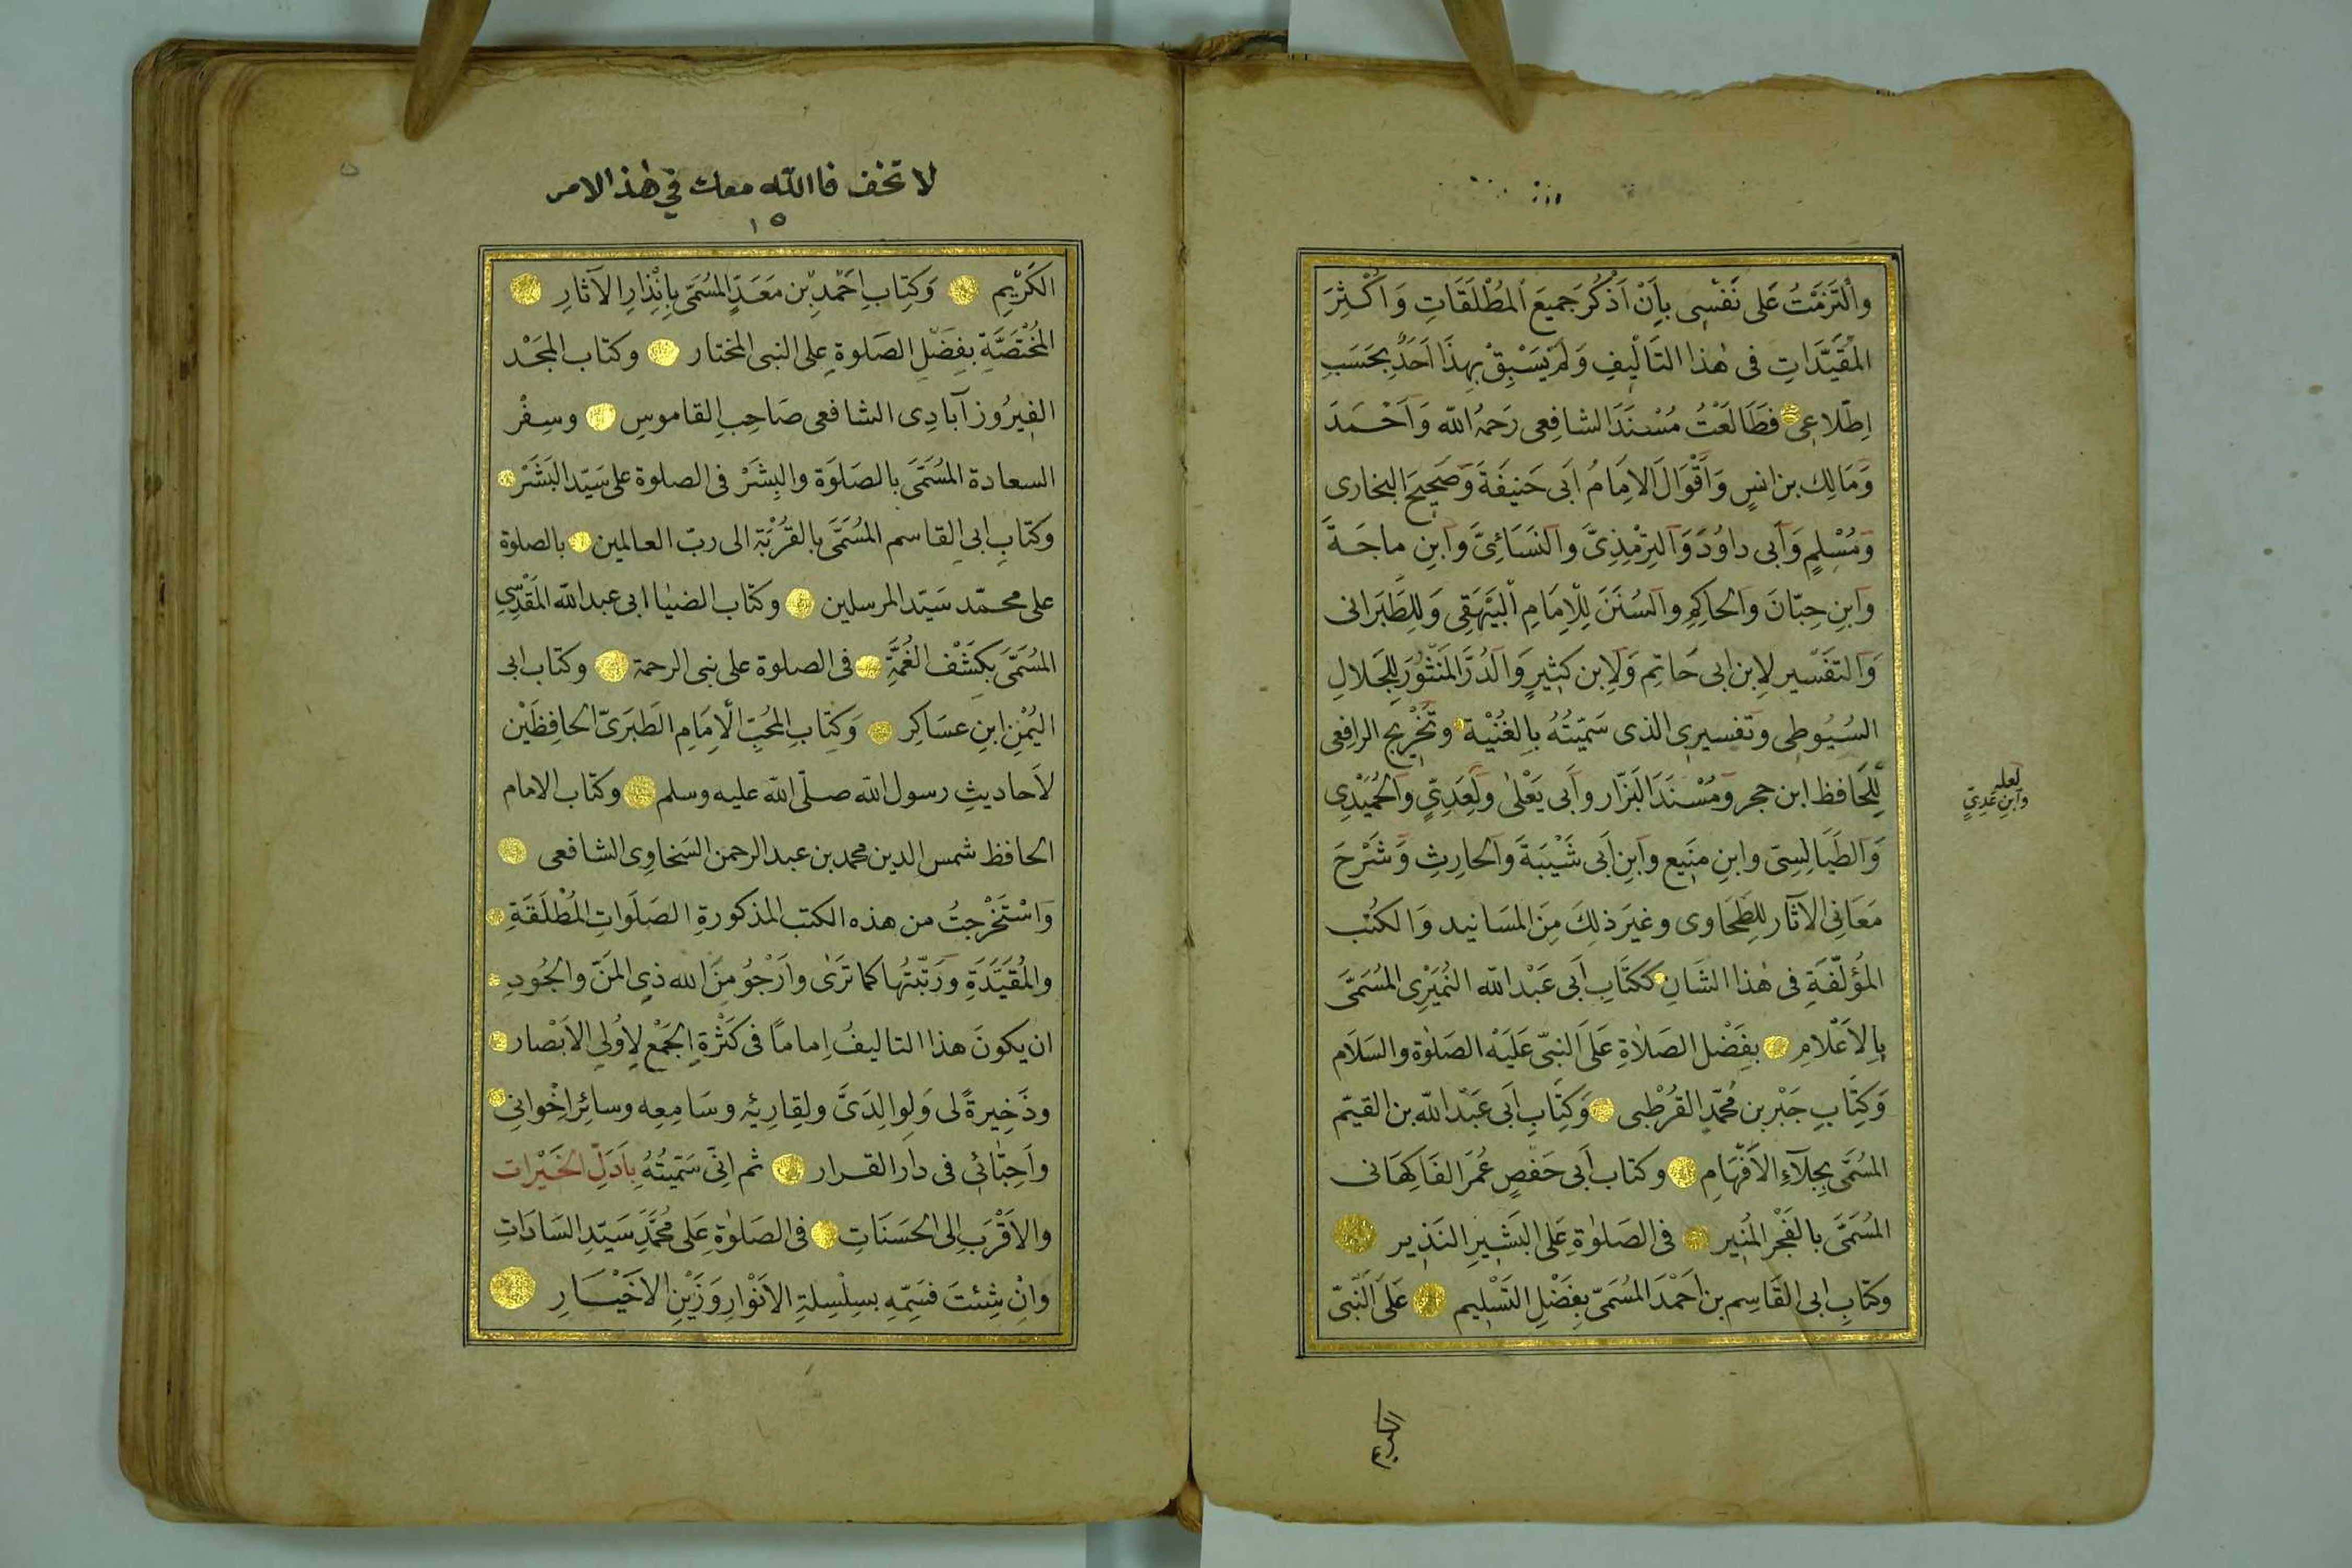 والْتَزَمْتُ عَلى نَفْسِى بِاَنْ اَذْكُرَ جَمِيعَ المُطْلَقَاتِ وَاَكْثَرَ
المُقَيَّدَاتِ فى هٰذا التَأليفِ وَلَمْ يَسْبِقْ بِهذَا اَحَدٌ بِحَسَبِ
اِطّلاعِى فطَالَعْتُ مُسْنَدَ الشافِعِى رَحِمَهُ اللّه وَاَحْمَدَ
وَمَالِك بن انسٍ وَاَقْوَالَ الاِمَامُ اَبى حَنِيفَةَ وَصَحِيحَ البخارى
وَمُسْلِمٍ وَاَبى داوُدَ وَالتِرْمِذِىَّ والنَسَائِىَّ وَابنِ ماجَةَ
وَابنِ حِبّانَ وَالحاكِمِ والسُنَنَ لِلْاِمَامِ الْبَيْهَقِى وَلِلطَبَرانى
وَالتفْسير لاِبن ابى حَاتِم وَلاِبن كَثِيرٍ وَالدُرَّ المَنْثُورَ لِلجَلالِ
السُيُوطِى وتفسيرى الذى سَمّيْتُهُ بِالغُنْيَة وتَخْرِيج الرافِعى
لِلْحَافظ ابن حجر وَمُسْنَدَ البَزّار وَاَبى يَعْلىٰ وَلِعَدِىٍّ والحُمَيْدِى
لعله
وابن عَدِىٍّ
وَالطَيَالِسِىّ وابنِ مَنِيع وابنِ اَبى شَيْبَةَ والحارِثِ وَشَرْحَ
مَعَانِى الآثَار لِلطَحَاوى وغيَر ذلِكَ مِنَ المسَانيد وَالكتُب
المُؤلّفَةِ فى هٰذا الشَانِ ككتَابِ اَبى عَبْد اللّه النُمَيْرِى المُسَمَّى
بِالاَعْلامِ بِفَضْل الصَلاةِ عَلَى النَبِىّ عَلَيْه الصَلوٰة والسَلام
وَكِتَابِ جَبْر بن مُحَمّدٍ القُرْطُبى وَكِتابِ اَبى عَبْد اللّه بن القيّم
المسَمّى بِجِلآءِ الاَفْهَامِ وكتاب اَبى حَفصٍ عُمَرَ الفَاكِهَانى
المُسَمَّى بالفَجْرِ المُنِيرِ فى الصَلوٰةِ عَلَى البَشِيرِ النَذِير
وكتابِ ابى القَاسِم بن اَحْمَدَ المُسَمىّ بِفَضْلِ التَسْليم عَلَى النَّبىّ
الكريم
لا تخف فا اللّه معك فى هٰذ الامر
١٥
الكَرِيْمِ وَكِتاب اَحْمَدِ بْن مَعَدٍّ المُسَمّى بِاِنْذارِ الآثارِ
المُخْتَصَّةِ بِفَضْلِ الصَلوةِ على النبى المختار وكتاب المجَدْ
الفيرُوز آبادِى الشافعى صَاحِبِ القاموسِ وسِفْر
السعادة المُسَمَّى بالصَلَوٰة والبِشَرْ فى الصلوة على سَيّد البَشَرْ
وكتابِ ابى القاسم المُسَمَّى بالقُرْبَةِ الى ربّ العالمين بالصلوة
على محمّد سَيّد المرسلين وكتاب الضيٰا ابى عبد اللّه المَقْدِسِى
المُسَمّىَ بكَشْفِ الغُمَّةِ فى الصلوة على نبى الرحمة وكتاب ابى
اليُمْنِ ابنِ عسَاكِر وَكتَابِ المحُبّ الاِمَامِ الطَبَرىّ الحافِظَيْن
لاَحاديثِ رسول اللّه صلّى اللّه عليه وسلم وكتاب الامام
الحافظ شمس الدين محمد بن عبد الرحمن السَخاوِى الشافعى
وَاسْتَخْرجتُ من هذه الكتب المذكورةِ الصَلَواتِ المُطْلَقَةِ
والمُقَيَّدَةِ ورَتّبْتُها كما تَرىٰ وارْجُو مِنَ الله ذِى المَنّ والجُودِ
ان يكونَ هذا التاليفُ اِماماً فى كَثْرةِ الجَمْعِ لاِوُلِى الاَبْصار
وذَخِيرةً لى وَلِوالِدَىَّ ولِقارِئِه وسَامِعِه وسائِر اِخْوانى
واَحِبّائِى فى دار القرار ثم اِنّى سَمّيتُهُ بِاَدَلِّ الخَيْرات
والاَقْرَبِ اِلى الحسَنَاتِ فى الصَلوٰةِ عَلى مُحَمَّدٍ سَيّدِ السَادَاتِ
وَاِنْ شِئتَ فسَمّهِ بسِلْسِلةِ الاَنْوارِ وَزَيْنِ الاخَيْارِ